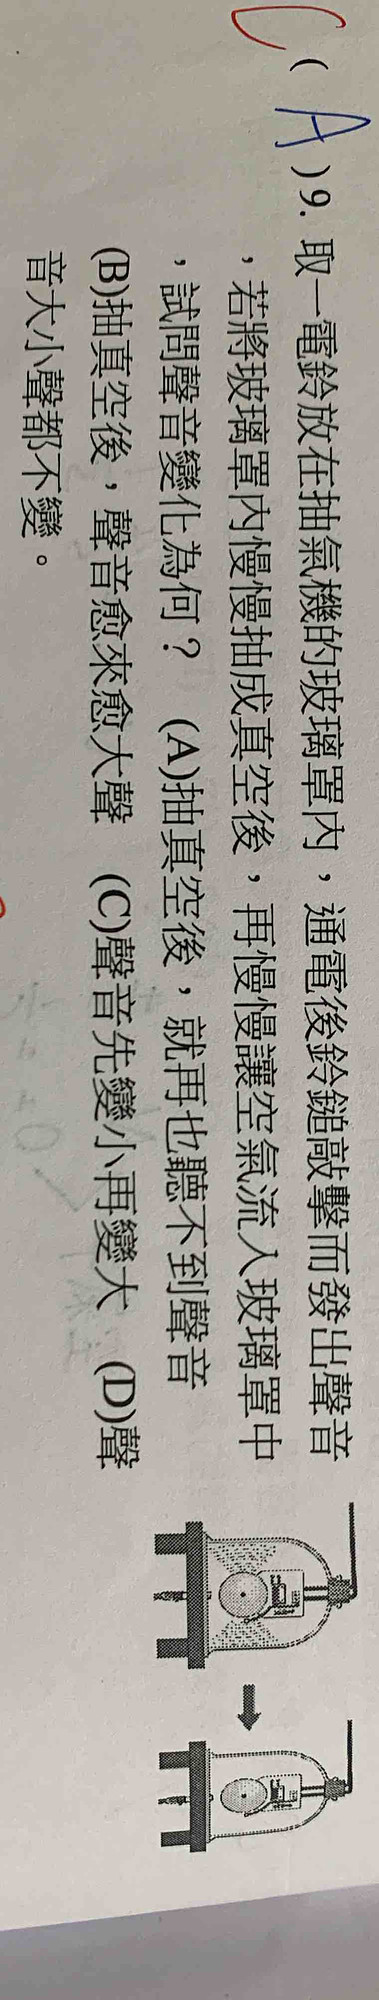 C
( A )9. 取一電鈴放在抽氣機的玻璃罩內，通電後鈴鎚敲擊而發出聲音
，若將玻璃罩內慢慢抽成真空後，再慢慢讓空氣流入玻璃罩中
，試問聲音變化為何？ (A)抽真空後，就再也聽不到聲音
(B)抽真空後，聲音愈來愈大聲 (C)聲音先變小再變大 (D)聲
音大小聲都不變。